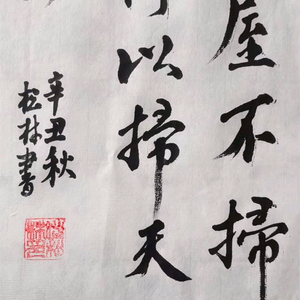 屋不掃
何以掃天
辛丑秋
松林書